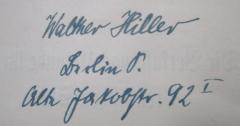 Walther Hiller
Berlin S.
Alte Jakobstr. 92 I